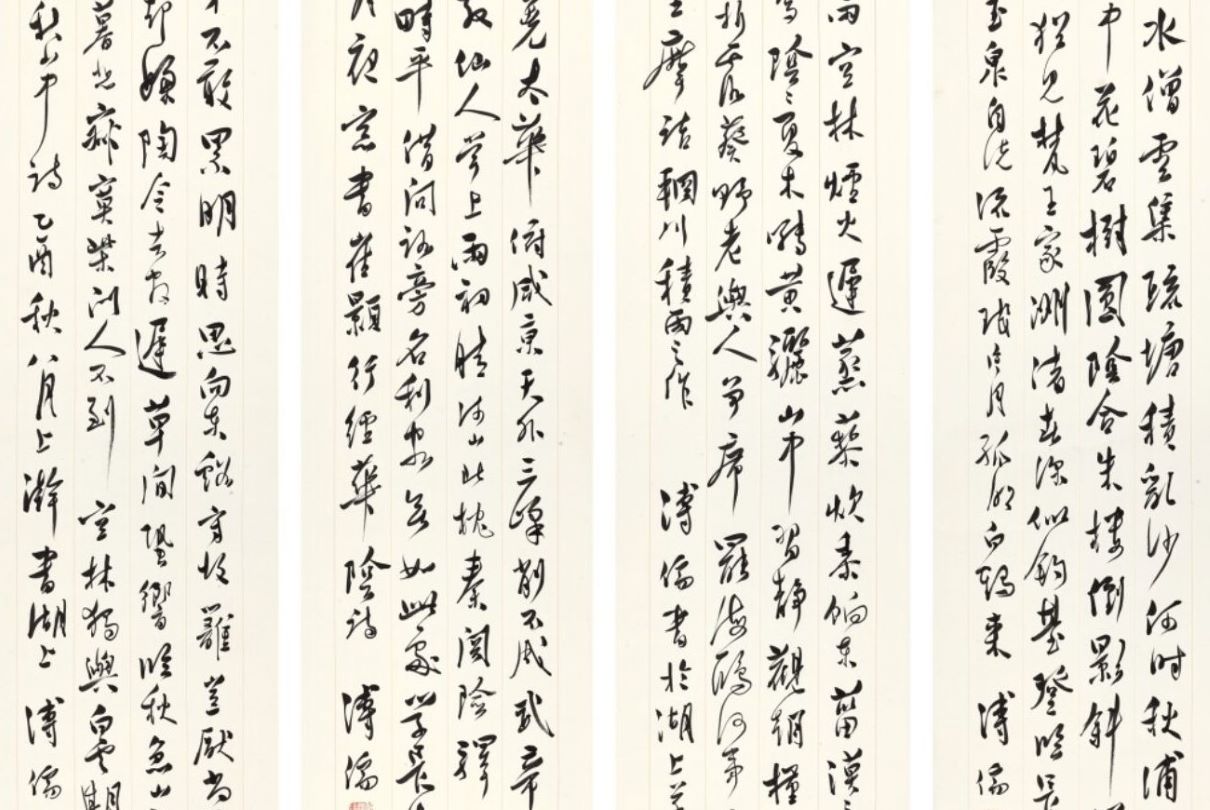 水僧雲集疏塘積亂沙何時秋浦
中花碧樹圓陰合朱樓倒影斜
猶見梵王家洲渚春深似釣臺登臨
玉泉自繞流霞月孤白鶴來 溥儒
雨空林煙火遲蒸藜炊黍餉東菑漠
陰〻夏木囀黃鸝山中習靜觀朝槿
折露葵野老與人爭席罷海鷗何事
王摩詰輞川積雨之作 溥儒書於湖上
嶢太華俯咸京天外三峰削不成武帝
散仙人掌上雨初晴河山北枕秦關險驛
畤平借問路旁名利客無如此處學長
月夜窗書崔顥行經華陰詩 溥儒
才不敢累明時思向東谿守故籬豈厭尚
却嫌陶令去官遲草間蛩響臨秋急山
暮悲寂寞柴門人不到空林獨與白雲期
秋山中詩乙酉秋八月上澣書湖上 溥儒